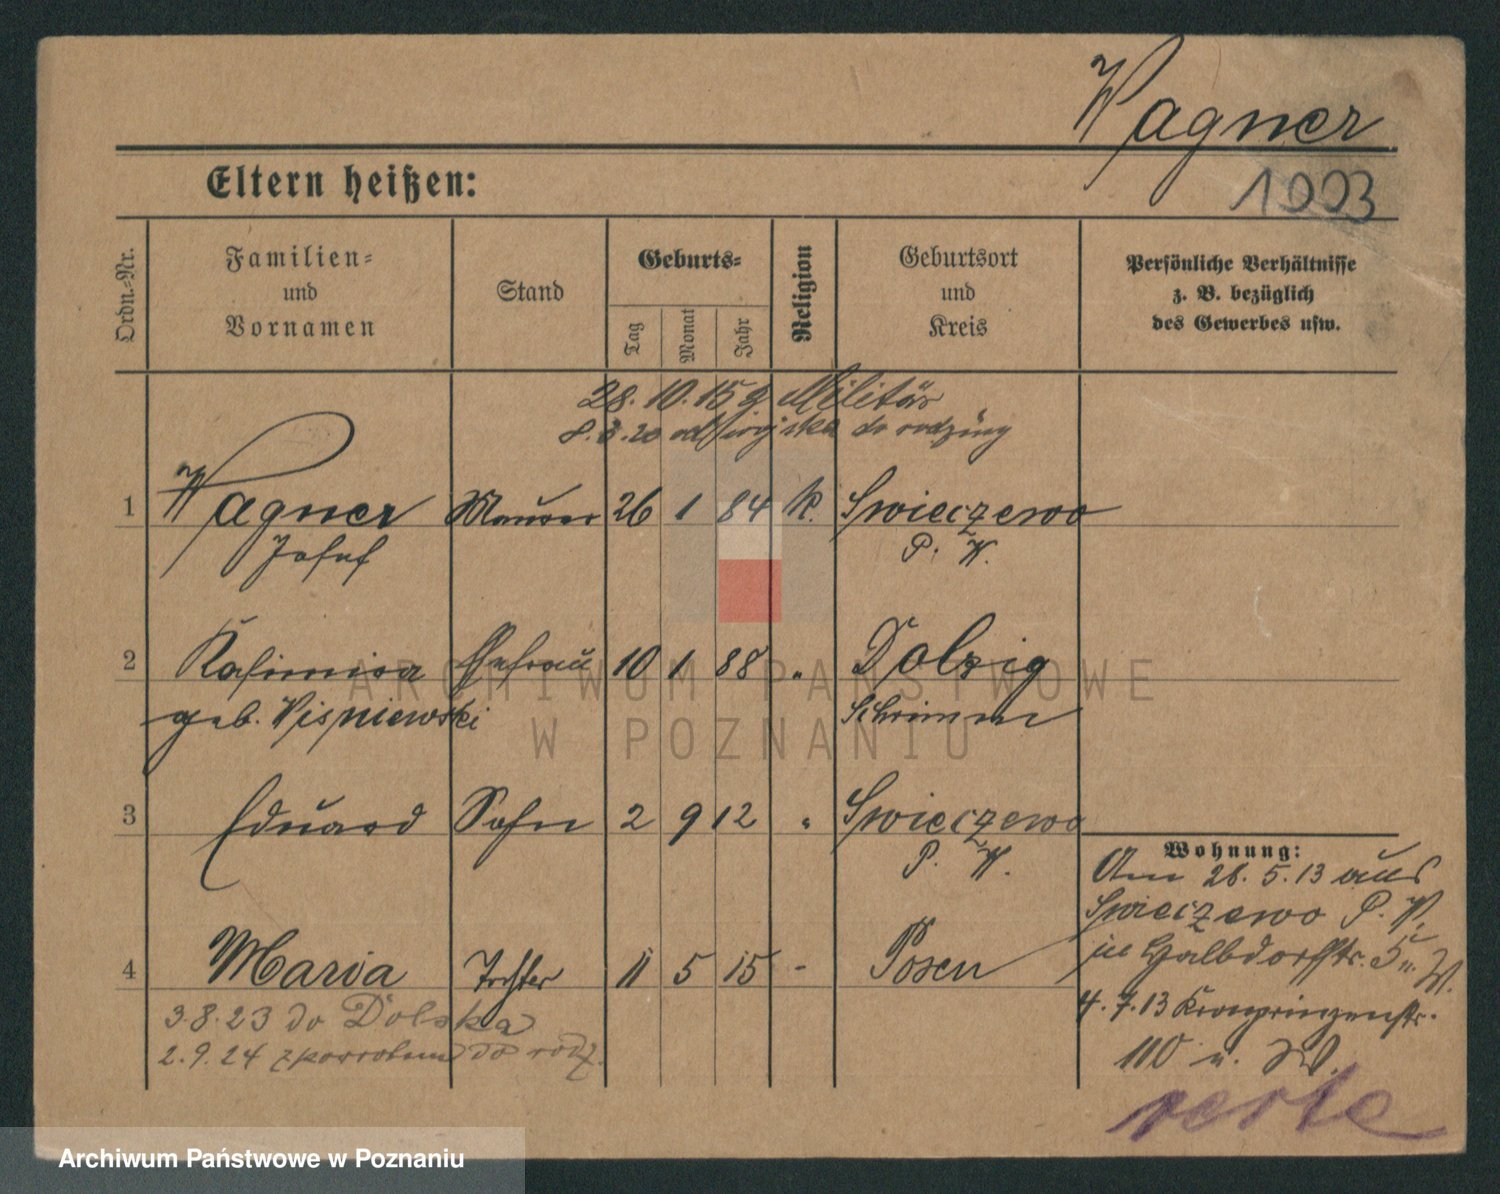 Wagner
1003
Eltern heißen:
Ordn.-Nr.
Familien-
und
Vornamen
Stand
Geburts-
Tag
Monat
Jahr
Religion
Geburtsort
und
Kreis
Persönliche Verhältnisse
z. B. bezüglich
des Gewerbes usw.
28. 10. 15 z. Militär
8. 3. 20 od wojska do rodziny
1 Wagner Maurer 26 1 84 K. Swieczewo
Josef P. W.
2 Kasimira Ehefrau 10 1 88 " Dolzig
geb. Wisniewski Schrimm
3 Eduard Sohn 2 9 12 " Swieczewo
P. W.
4 Maria Tochter 11 5 15 - Posen
3.8.23 do Dolska
2.9.24 z powrotem do rodz.
Wohnung:
Am 28. 5. 13 aus
Swieczewo P. W.
in Halbdorffstr. 5 n. W.
4. 7. 13 Kronprinzenstr.
110 n. W.
verte
ARCHIWUM PAŃSTWOWE
W POZNANIU
Archiwum Państwowe w Poznaniu